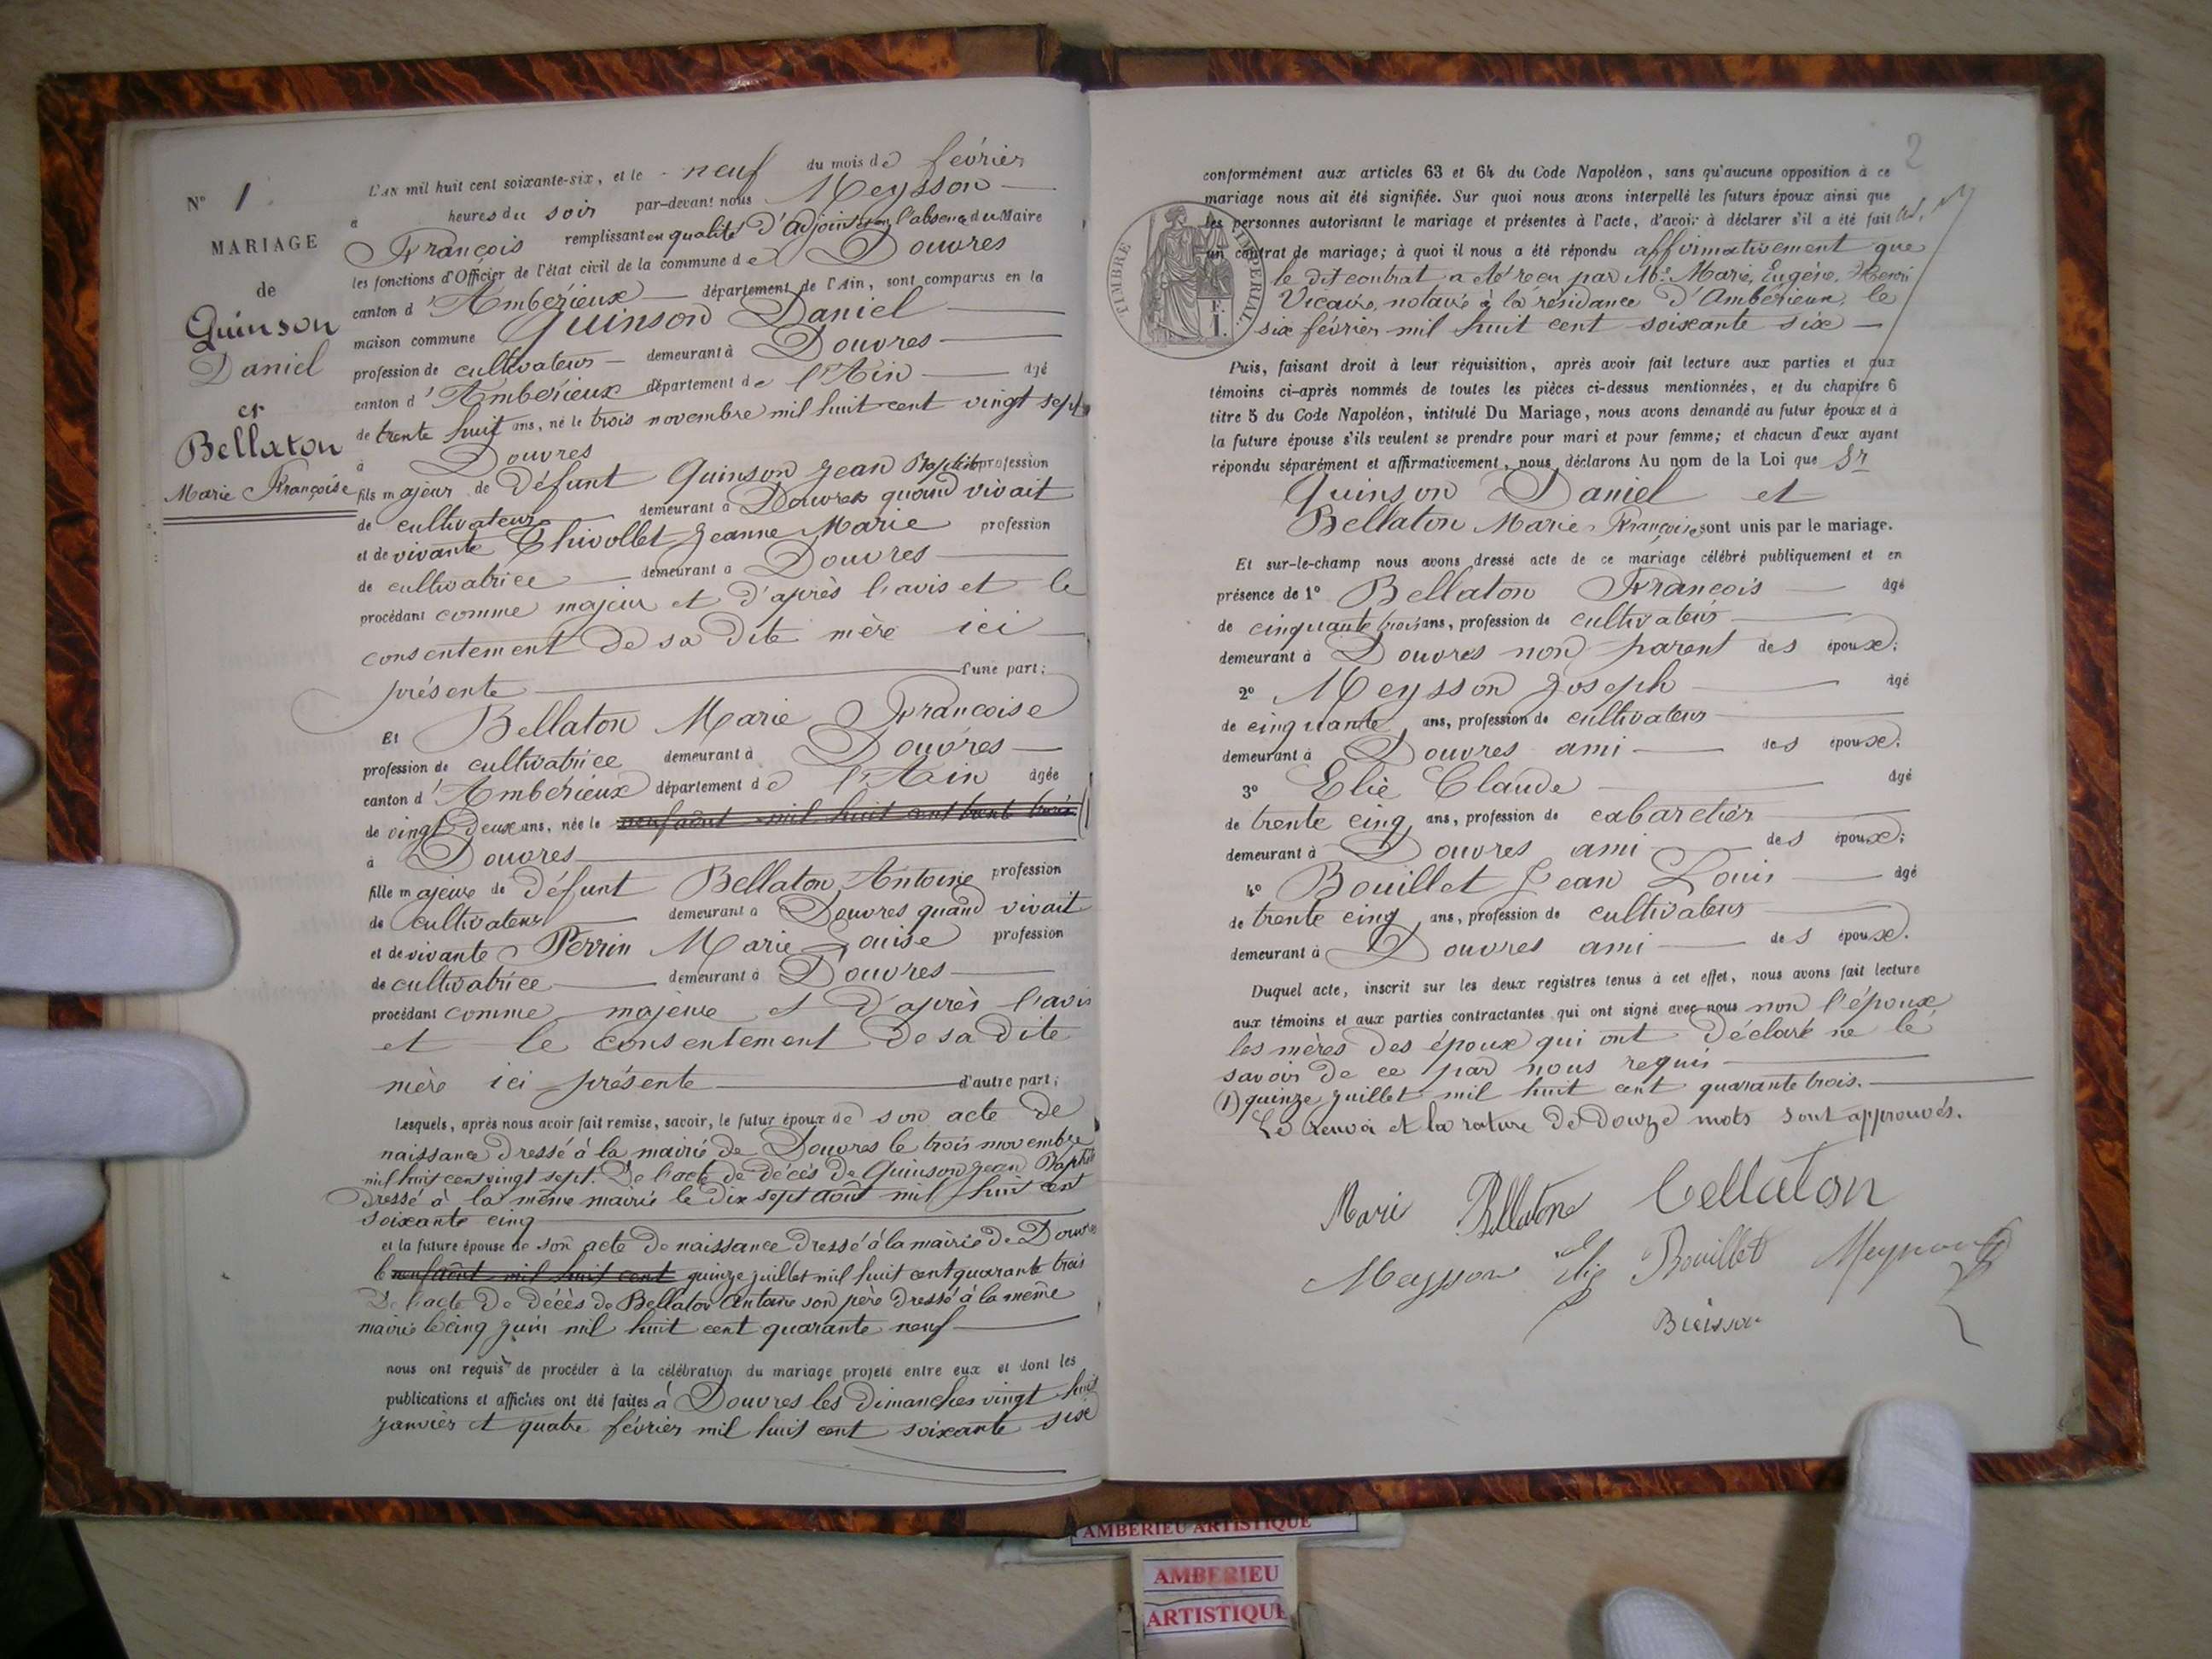 N° 1
MARIAGE
de
Quinson
Daniel
et
Bellaton
Marie Françoise
L'AN mil huit cent soixante-six, et le neuf du mois de février
à heures du soir par-devant nous Meysson
François remplissant en qualité d'adjoint en l'absence du Maire
les fonctions d'Officier de l'état civil de la commune de Douvres
canton d'Ambérieux département de l'Ain, sont comparus en la
maison commune Quinson Daniel
profession de cultivateur demeurant à Douvres
canton d'Ambérieux département de l'Ain âgé
de trente huit ans, né le trois novembre mil huit cent vingt sept
à Douvres
fils majeur de défunt Quinson Jean Baptiste profession
de cultivateur demeurant à Douvres quand vivait
et de vivante Chivollet Jeanne Marie profession
de cultivatrice demeurant à Douvres
procédant comme majeur et d'après l'avis et le
consentement de sa dite mère ici
présente d'une part;
Et Bellaton Marie Françoise
profession de cultivatrice demeurant à Douvres
canton d'Ambérieux département de l'Ain âgée
de vingt deux ans, née le neuf août mil huit cent trente trois (1)
à Douvres
fille majeure de défunt Bellaton Antoine profession
de cultivateur demeurant à Douvres quand vivait
et de vivante Perrin Marie Louise profession
de cultivatrice demeurant à Douvres
procédant comme majeure et d'après l'avis
et le consentement de sa dite
mère ici présente d'autre part;
Lesquels, après nous avoir fait remise, savoir, le futur époux de son acte de
naissance dressé à la mairie de Douvres le trois novembre
mil huit cent vingt sept. De l'acte de décès de Quinson Jean Baptiste
dressé à la même mairie le dix sept août mil huit cent
soixante cinq
et la future épouse de son acte de naissance dressé à la mairie de Douvres
le neuf août mil huit cent quinze juillet mil huit cent quarante trois
De l'acte de décès de Bellaton Antoine son père dressé à la même
mairie le cinq juin mil huit cent quarante neuf
nous ont requis de procéder à la célébration du mariage projeté entre eux et dont les
publications et affiches ont été faites à Douvres les dimanches vingt huit
janvier et quatre février mil huit cent soixante six
2
conformément aux articles 63 et 64 du Code Napoléon, sans qu'aucune opposition à ce
mariage nous ait été signifiée. Sur quoi nous avons interpellé les futurs époux ainsi que
les personnes autorisant le mariage et présentes à l'acte, d'avoir à déclarer s'il a été fait
un contrat de mariage; à quoi il nous a été répondu affirmativement que
le dit contrat a été reçu par Me Marie, Eugène, Henri
Vicaire, notaire à la résidance d'Ambérieux, le
six février mil huit cent soixante six
TIMBRE IMPERIAL
F.
1.
Puis, faisant droit à leur réquisition, après avoir fait lecture aux parties et aux
témoins ci-après nommés de toutes les pièces ci-dessus mentionnées, et du chapitre 6
titre 5 du Code Napoléon, intitulé Du Mariage, nous avons demandé au futur époux et à
la future épouse s'ils veulent se prendre pour mari et pour femme; et chacun d'eux ayant
répondu séparément et affirmativement, nous déclarons Au nom de la Loi que Sr
Quinson Daniel et
Bellaton Marie Françoise sont unis par le mariage.
Et sur-le-champ nous avons dressé acte de ce mariage célébré publiquement et en
présence de 1° Bellaton François âgé
de cinquante trois ans, profession de cultivateur
demeurant à Douvres non parent des époux;
2° Meysson Joseph âgé
de cinquante ans, profession de cultivateur
demeurant à Douvres ami des époux;
3° Elie Claude âgé
de trente cinq ans, profession de cabaretier
demeurant à Douvres ami des époux;
4° Bouillet Jean Louis âgé
de trente cinq ans, profession de cultivateur
demeurant à Douvres ami des époux.
Duquel acte, inscrit sur les deux registres tenus à cet effet, nous avons fait lecture
aux témoins et aux parties contractantes qui ont signé avec nous non l'époux
les mères des époux qui ont déclaré ne le
savoir de ce par nous requis
(1) quinze juillet mil huit cent quarante trois.
Le renvoi et la rature de douze mots sont approuvés.
Mari Bellaton Bellaton
Meysson Elie Bouillet Meysson
Buisson
AMBERIEU ARTISTIQUE
AMBERIEU
ARTISTIQUE